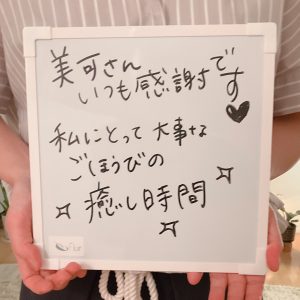 美可さん
いつも感謝です♥
私にとって 大事な
ごほうびの
癒し時間